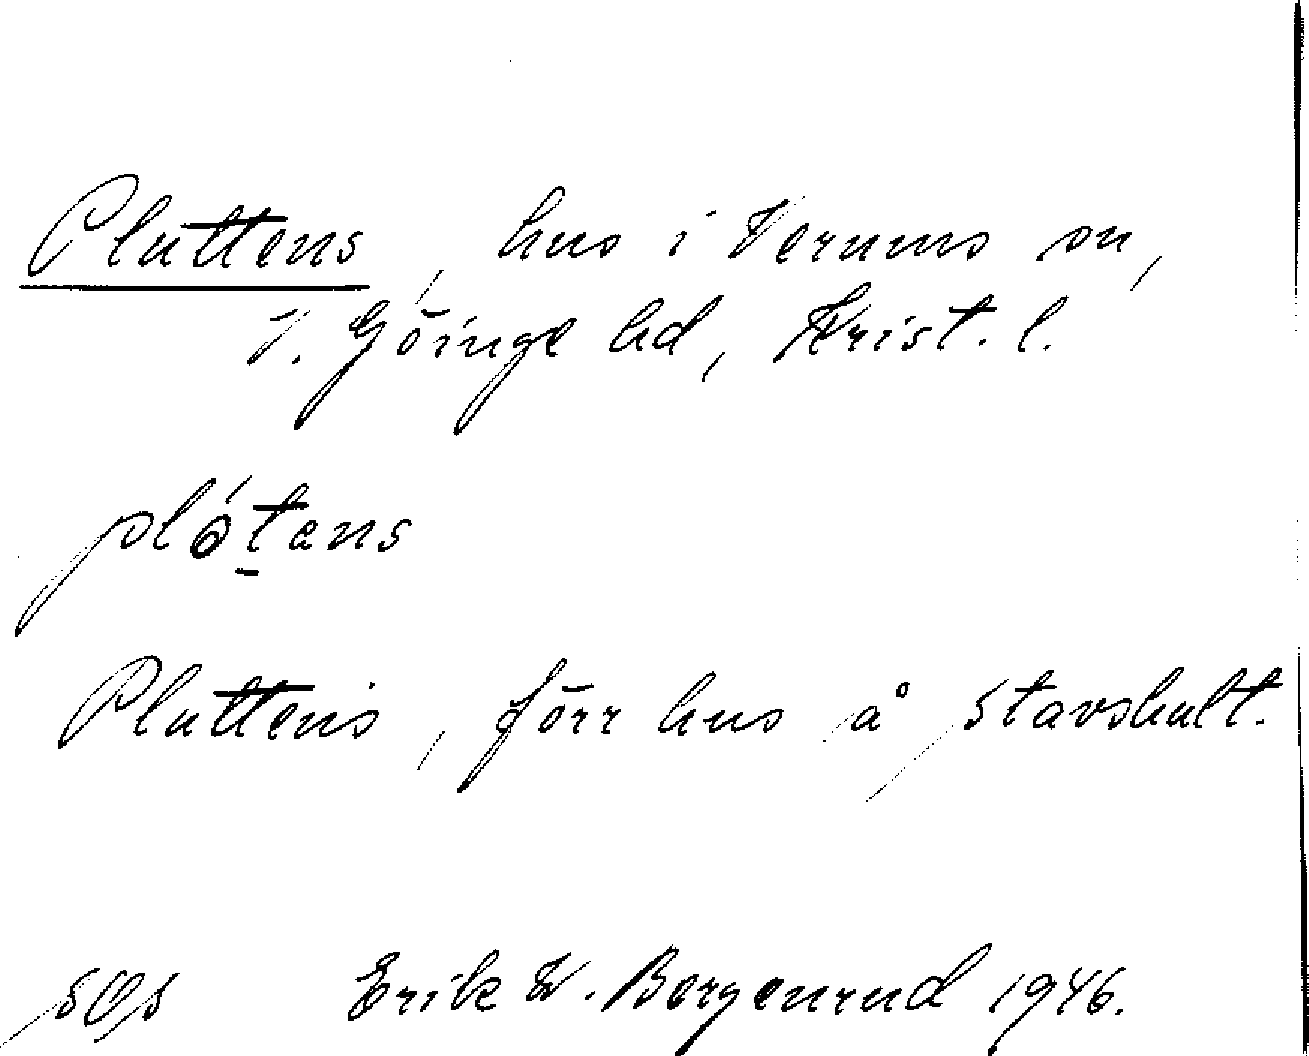 Pluttens, hus i Verums sn,
V. Göinge hd, Krist. l.
plót̲ans
Pluttens, förr hus å Stavshult.
SOS Erik W. Bergenrud 1946.